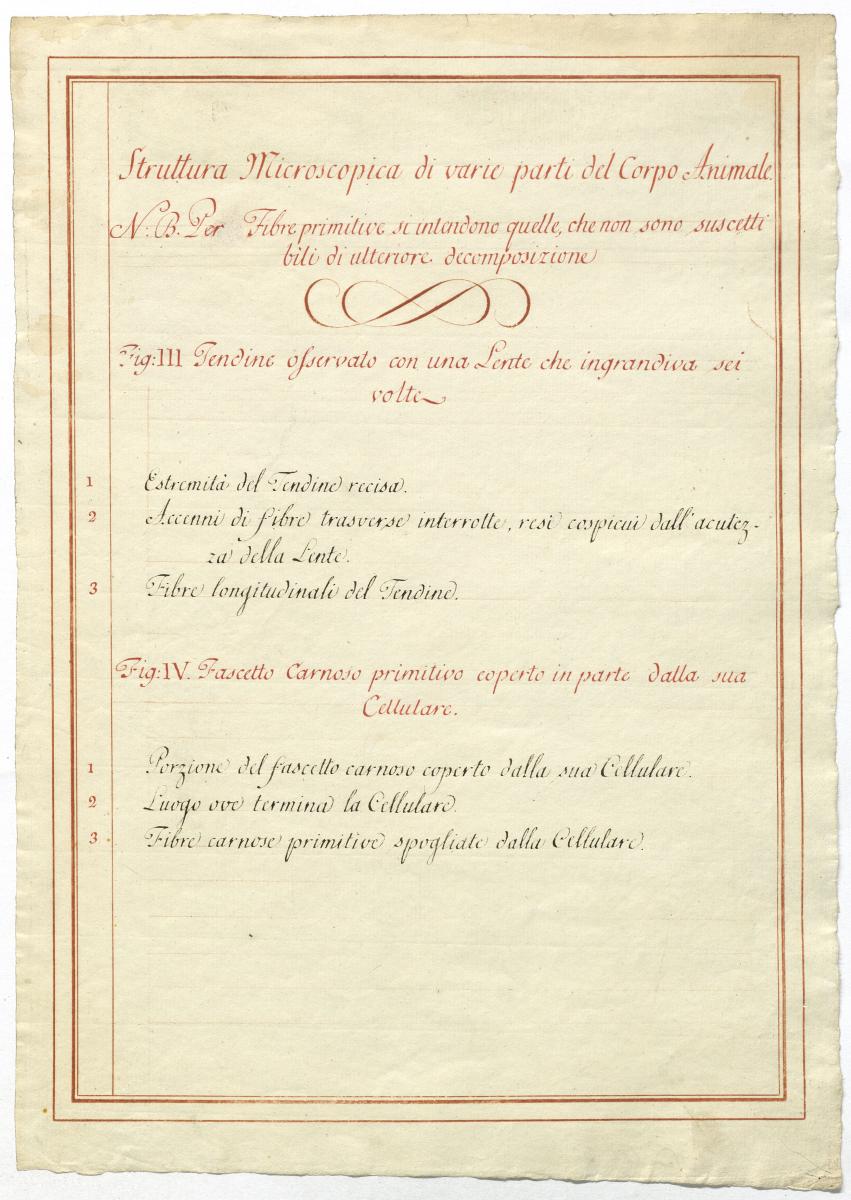 Struttura Microscopica di varie parti del Corpo Animale.
N: B. Per Fibre primitive si intendono quelle, che non sono suscetti
bili di ulteriore decomposizione
Fig: III Tendine osservato con una Lente che ingrandiva sei
volte
1 Estremità del Tendine recisa.
2 Accenni di fibre trasverse interrotte, resi cospicui dall'acutez-
za della Lente.
3 Fibre longitudinali del Tendine.
Fig: IV. Fascetto Carnoso primitivo coperto in parte dalla sua
Cellulare.
1 Porzione del fascetto carnoso coperto dalla sua Cellulare.
2 Luogo ove termina la Cellulare.
3 Fibre carnose primitive spogliate dalla Cellulare.